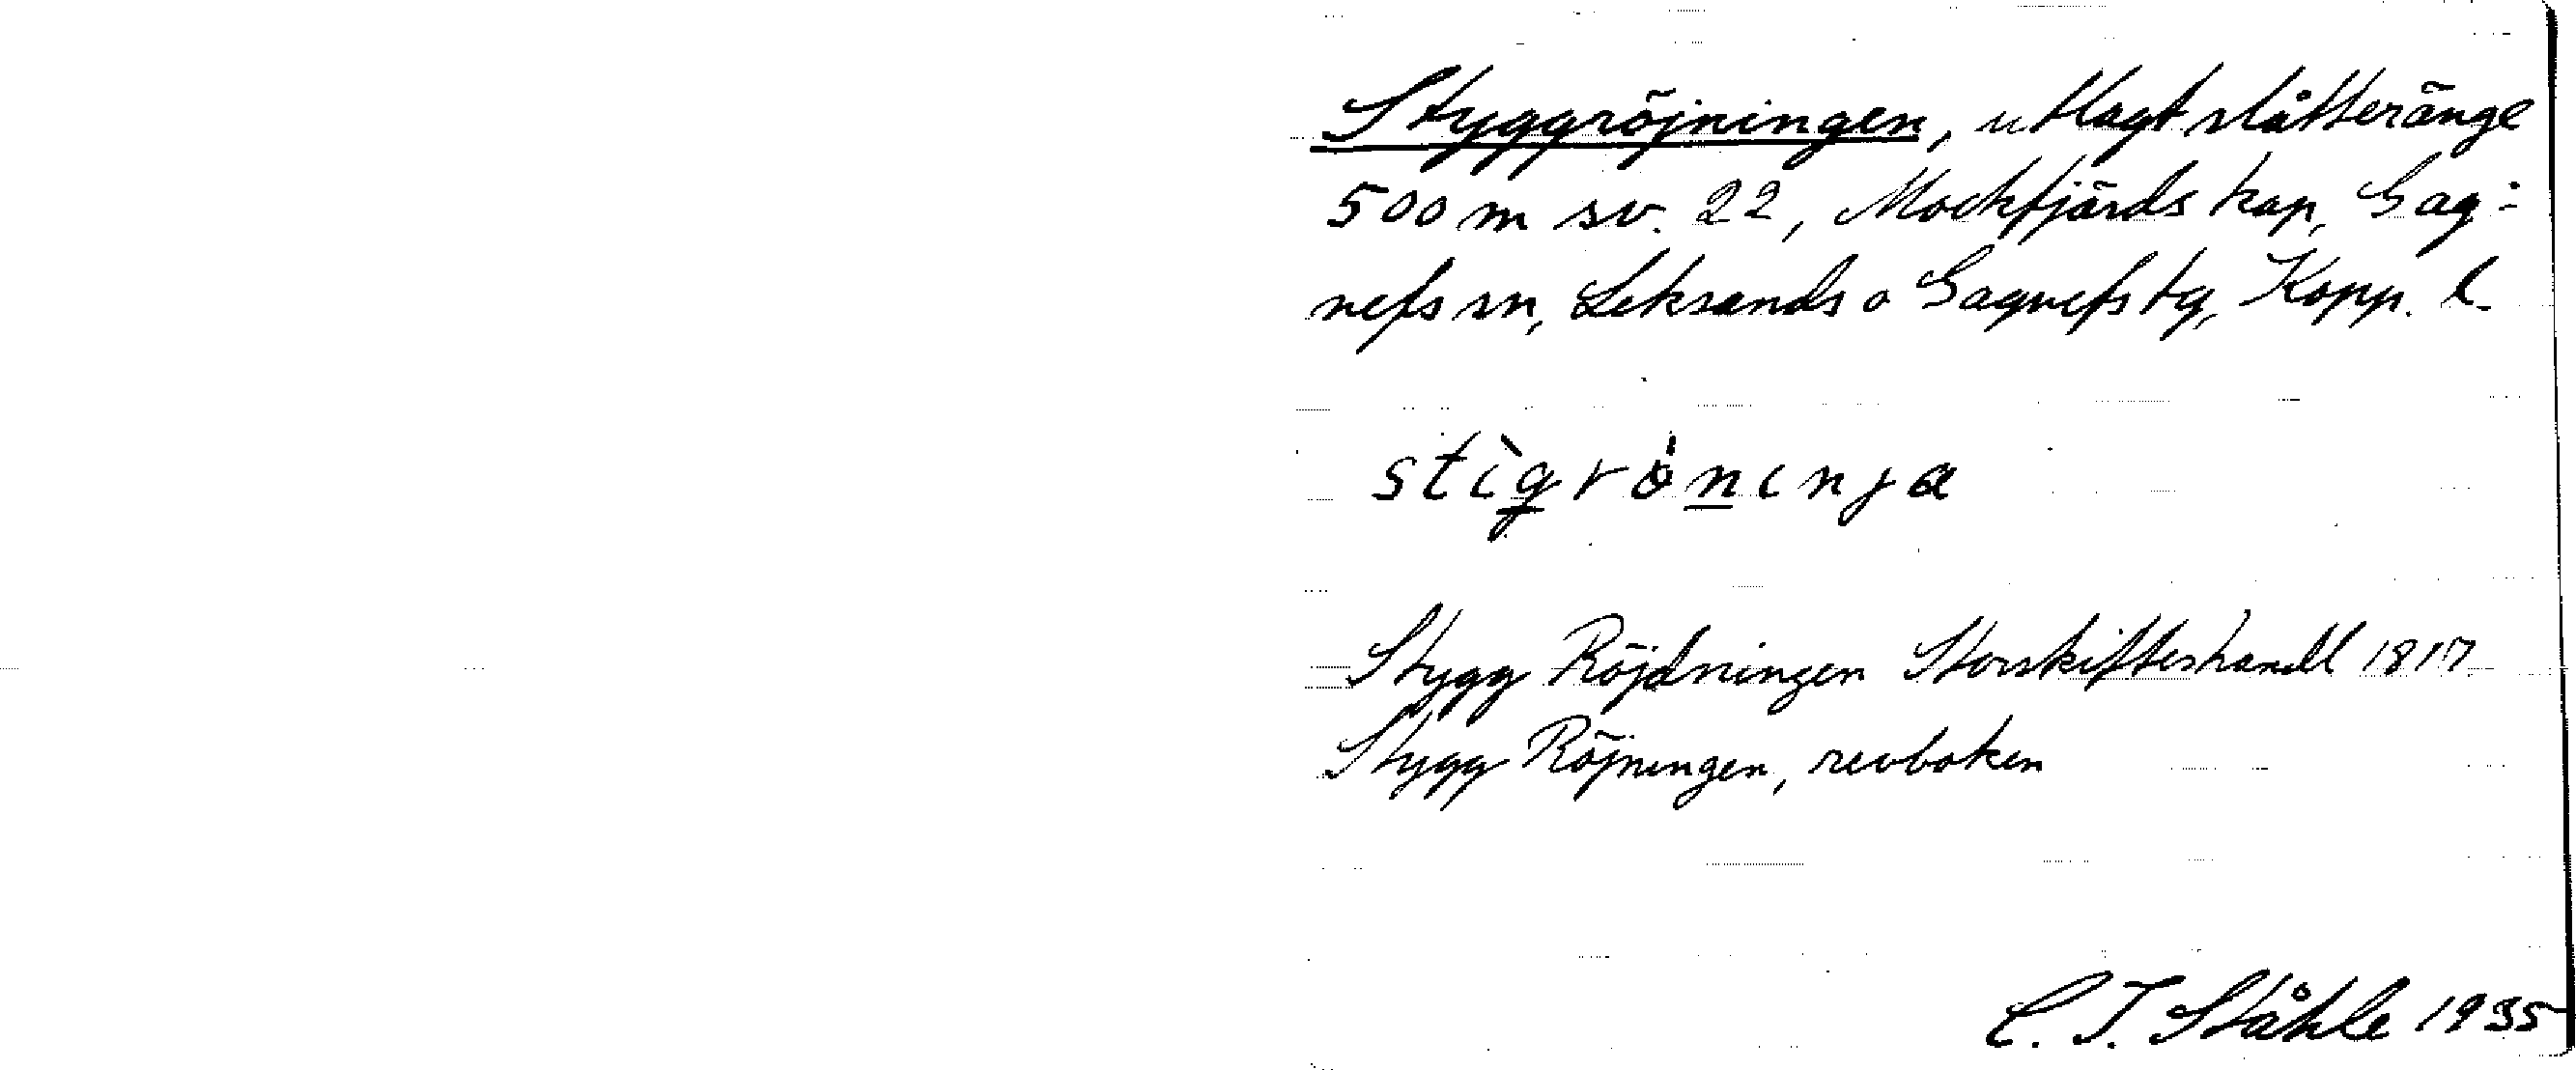 Styggröjningen, utlagt slåtteränge
500 m sv. 22, Mockfjärds kap, Gag-
nefs sn, Leksands o Gagnefs tg, Kopp. l.
stìgrö̀nınȷa
Stygg Röjdningen Storskifteshandl 1817
Stygg Röjningen, revboken
C. I. Ståhle 1935